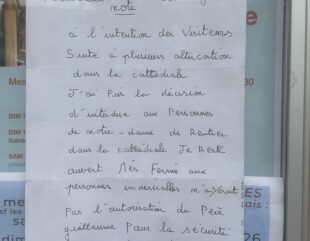 note
à l'intention des Visiteurs
Suite à plusieurs altercation
dans la cathédrale
J'ai Pris la décision
d'interdire aux Personnes
de notre-dame de
dans la cathédrale Je Reste
ouvert Mès Fermé aux
personnes indésirables n'ayant
Pas l'autorisation du Père
guillaume Pour la sécurité
Mes
30
DIM
DIM
Sainte
SAM
me
sf les
dim
ES
ais :
26